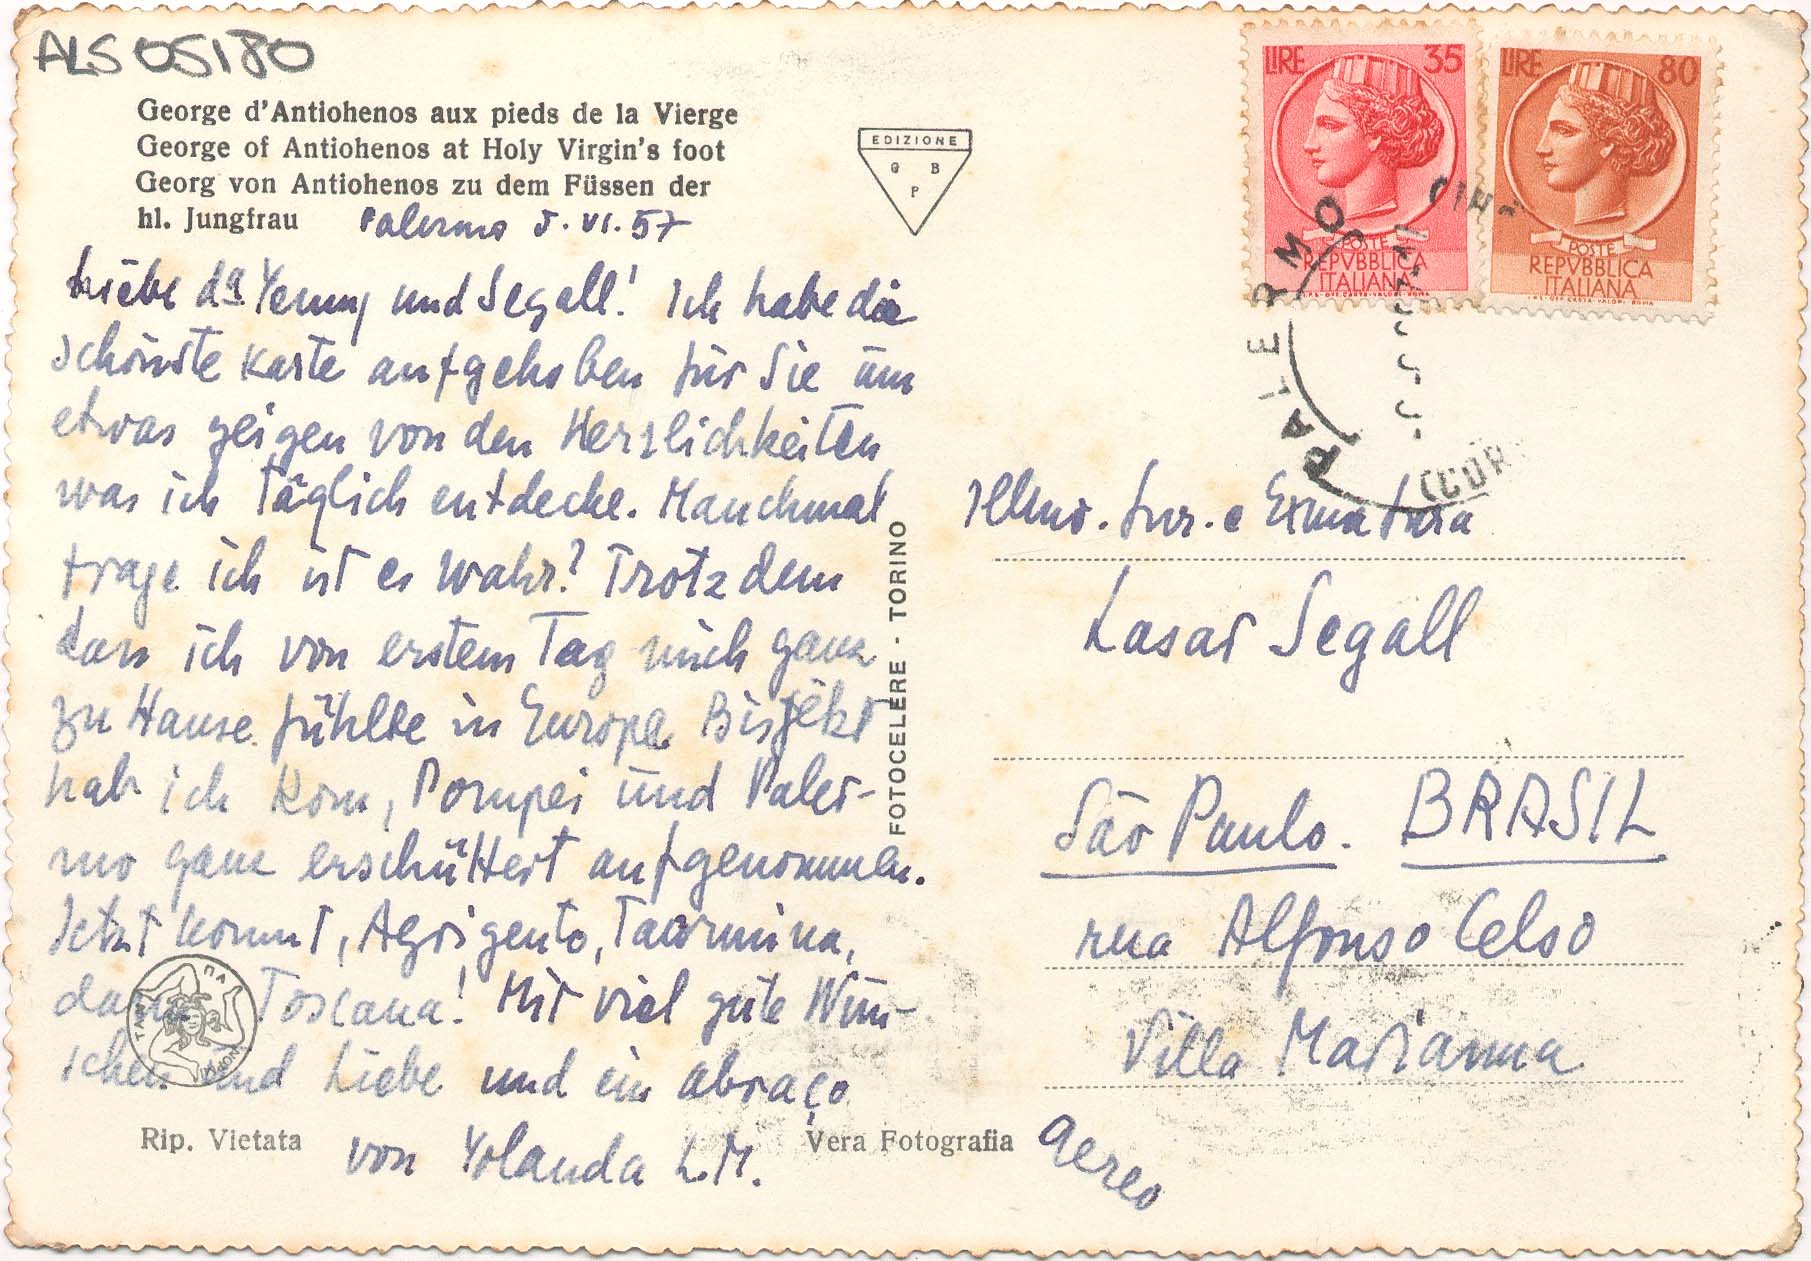 ALS 05180
George d'Antiohenos aux pieds de la Vierge
George of Antiohenos at Holy Virgin's foot
Georg von Antiohenos zu dem Füssen der
hl. Jungfrau
Palermo 5.VI.57
Liebe da Yenny und Segall! Ich habe die
schönste Karte aufgehoben für Sie um
etwas zeigen von den Herrlichkeiten
was ich täglich entdecke. Manchmal
frage ich ist es wahr? Trotzdem
dass ich von erstem Tag mich ganz
zu Hause fühlte in Europa Bis jetzt
hab ich Rom, Pompei und Paler-
mo ganz erschüttert aufgenommen.
Jetzt kommt, Agrigento, Taormina,
dann Toscana! Mit viel gute Wün-
schen und Liebe und ein abraço
von Yolanda L.M.
Rip. Vietata
Vera Fotografia
FOTOCELERE - TORINO
EDIZIONE
G B
P
LIRE 35
POSTE
REPVBBLICA
ITALIANA
LIRE 80
POSTE
REPVBBLICA
ITALIANA
PALERMO
Illmo. Snr. e Exma Snra
Lasar Segall
São Paulo. BRASIL
rua Alfonso Celso
Villa Marianna
aereo